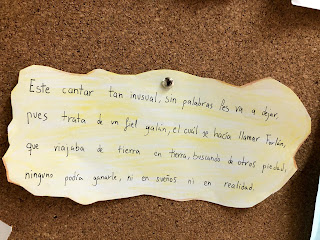 Este cantar tan inusual, sin palabras les va a dejar,
pues trata de un fiel galán, el cuál se hacía llamar Forlán,
que viajaba de tierra en tierra, buscando de otros piedad,
ninguno podía ganarle, ni en sueños ni en realidad.